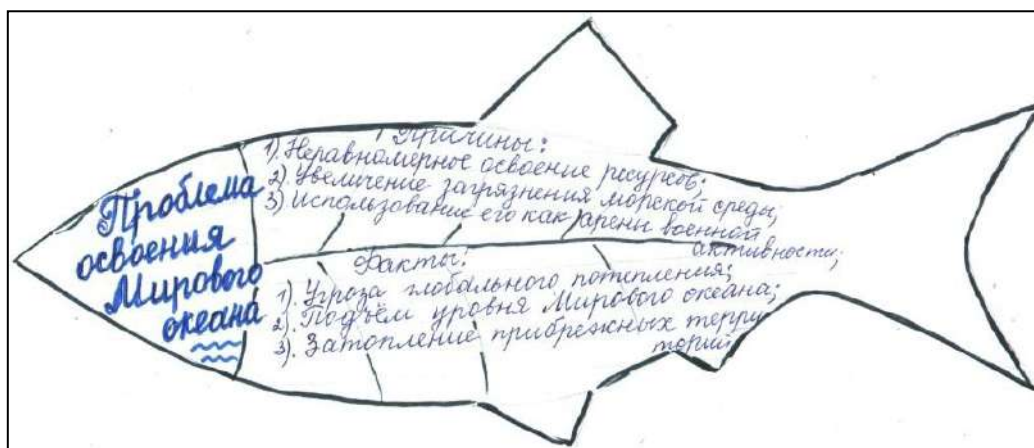 Проблема
освоения
Мирового
океана
Причины:
1). Неравномерное освоение ресурсов;
2). Увеличение загрязнения морской среды;
3) Использование его как арены военной
активности;
Факты:
1). Угроза глобального потепления;
2). Подъём уровня Мирового океана;
3). Затопление прибрежных терри
торий